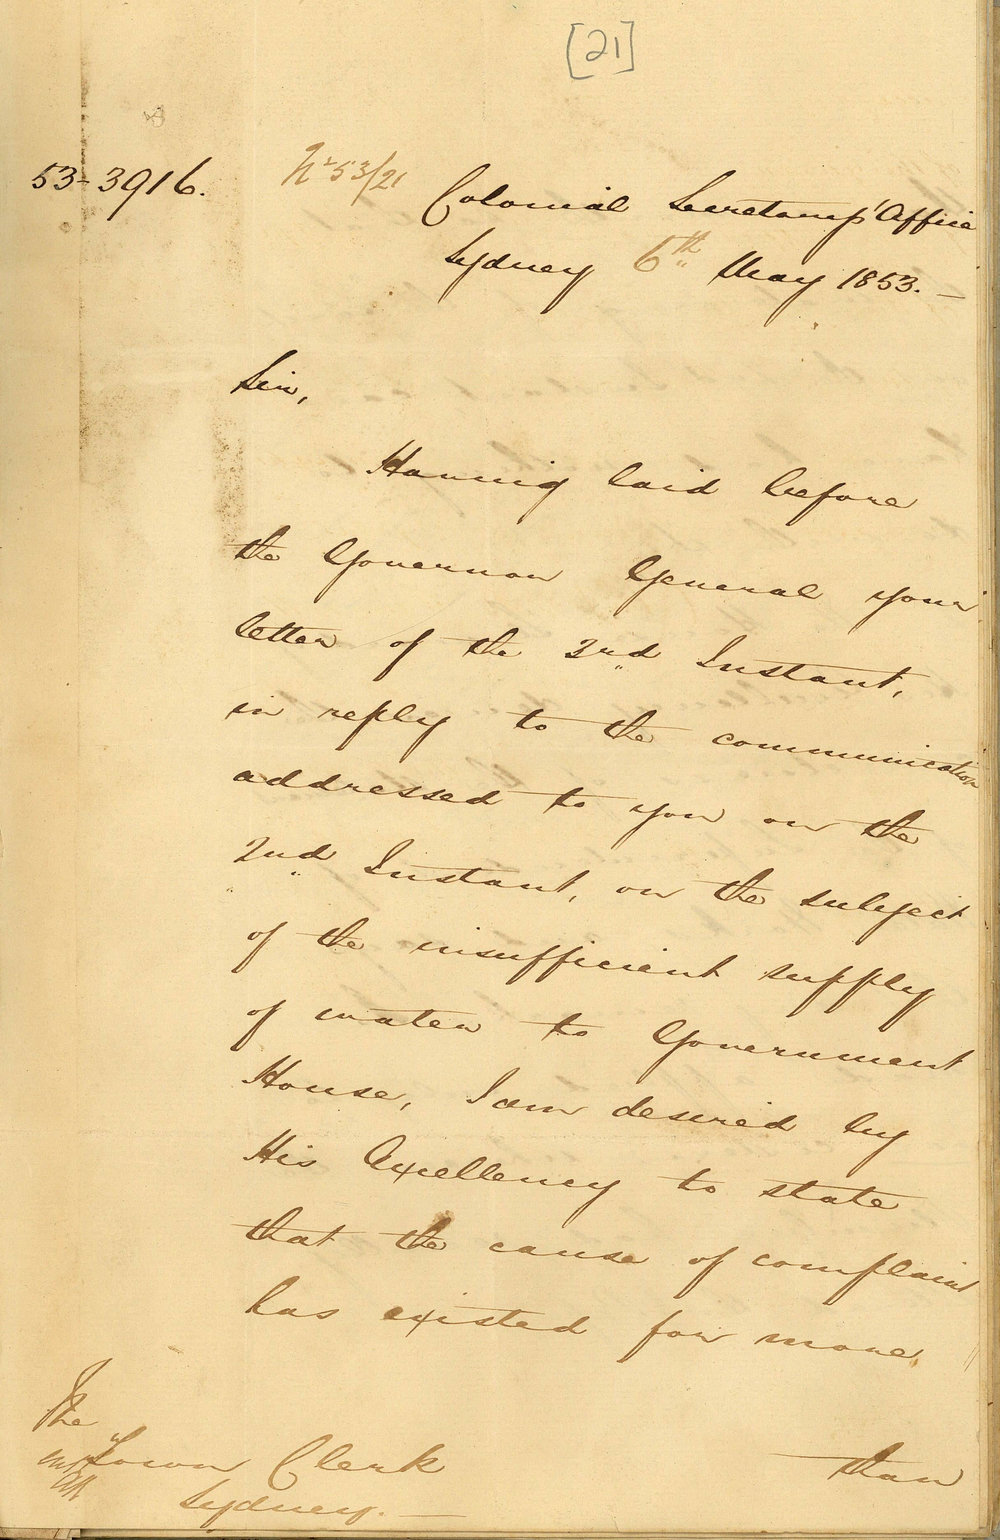 [21]
53-3916.
No 53/21
Colonial Secretary's Office
Sydney 6th May 1853.—
Sir,
Having laid before
the Governor General your
letter of the 3rd Instant,
in reply to the communication
addressed to you on the
2nd Instant, on the subject
of the insufficient supply
of water to Government
House, I am desired by
His Excellency to state
that the cause of complaint
has existed for more
than
The
Town Clerk
Sydney.—